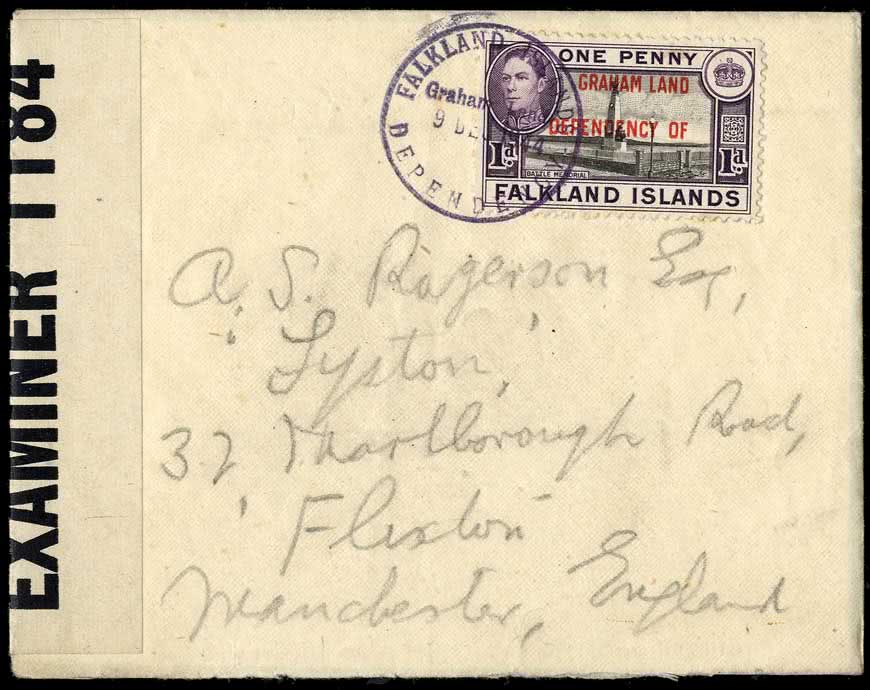 EXAMINER 1184
FALKLAND
Graham
9 DEC
DEPENDE
ONE PENNY
GRAHAM LAND
DEPENDENCY OF
1d 1d
BATTLE MEMORIAL
FALKLAND ISLANDS
A. S. Rogerson Esq,
Syston,
32, Marlborough Road,
Flixton
Manchester, England